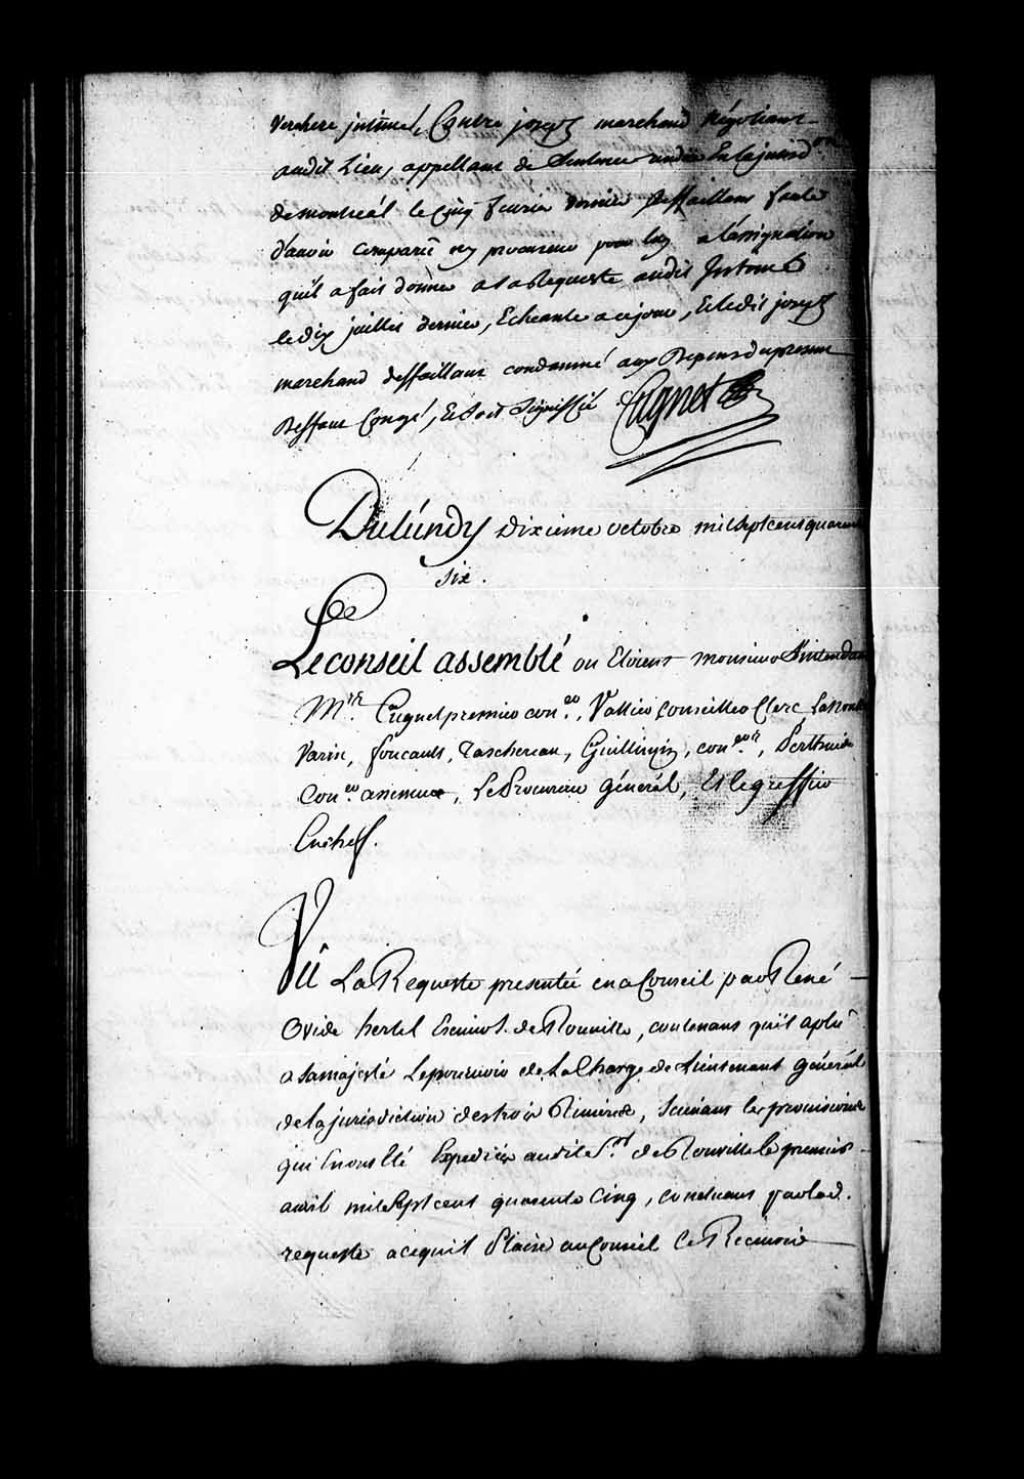 Verchere jntimé, Contre joseph marchand Négotiant
audit Lieu, appellant de Sentence rendüe En la jurisd.on
de montréal le Cinq fevrier dernier deffaillant faute
d'avoir comparu ny procureur pour luy a l'assignation
qu'il a fait donner a la Requeste audit Jntimé
le dix juillet dernier, Echeante a ce jour, Et le dit joseph
marchand deffaillant condamné aux Depens du present
Deffaut Congé, Et Soit Signiffié Cugnet
Du Lundy dixieme octobre mil Sept cent quarante
six.
Le conseil assemblé ou Etoient monsieur L'intendant
M.rs Cugnet premier con.er, Vallier Conseiller Clerc, Lanoulle
Varin, foucault, taschereau, Guillimin, con.ers, Perthuis
Con.er assesseur, Le Procureur général, Et le greffier
En chef.
Vû La Requeste presentée en ce Conseil par René
Ovide hertel Ecuier S. de Rouville, contenant qu'il a plu
a Sa majesté Le pourvoir de La Charge de Lieutenant général
de la jurisdiction des trois Rivieres, Suivant les provisions
qui En ont Eté Expediées audit S.r de Rouville le premier
avril mil Sept cent quarante Cinq, concluant par lad.
requeste a ce qu'il Plaise au Conseil Le Recevoir